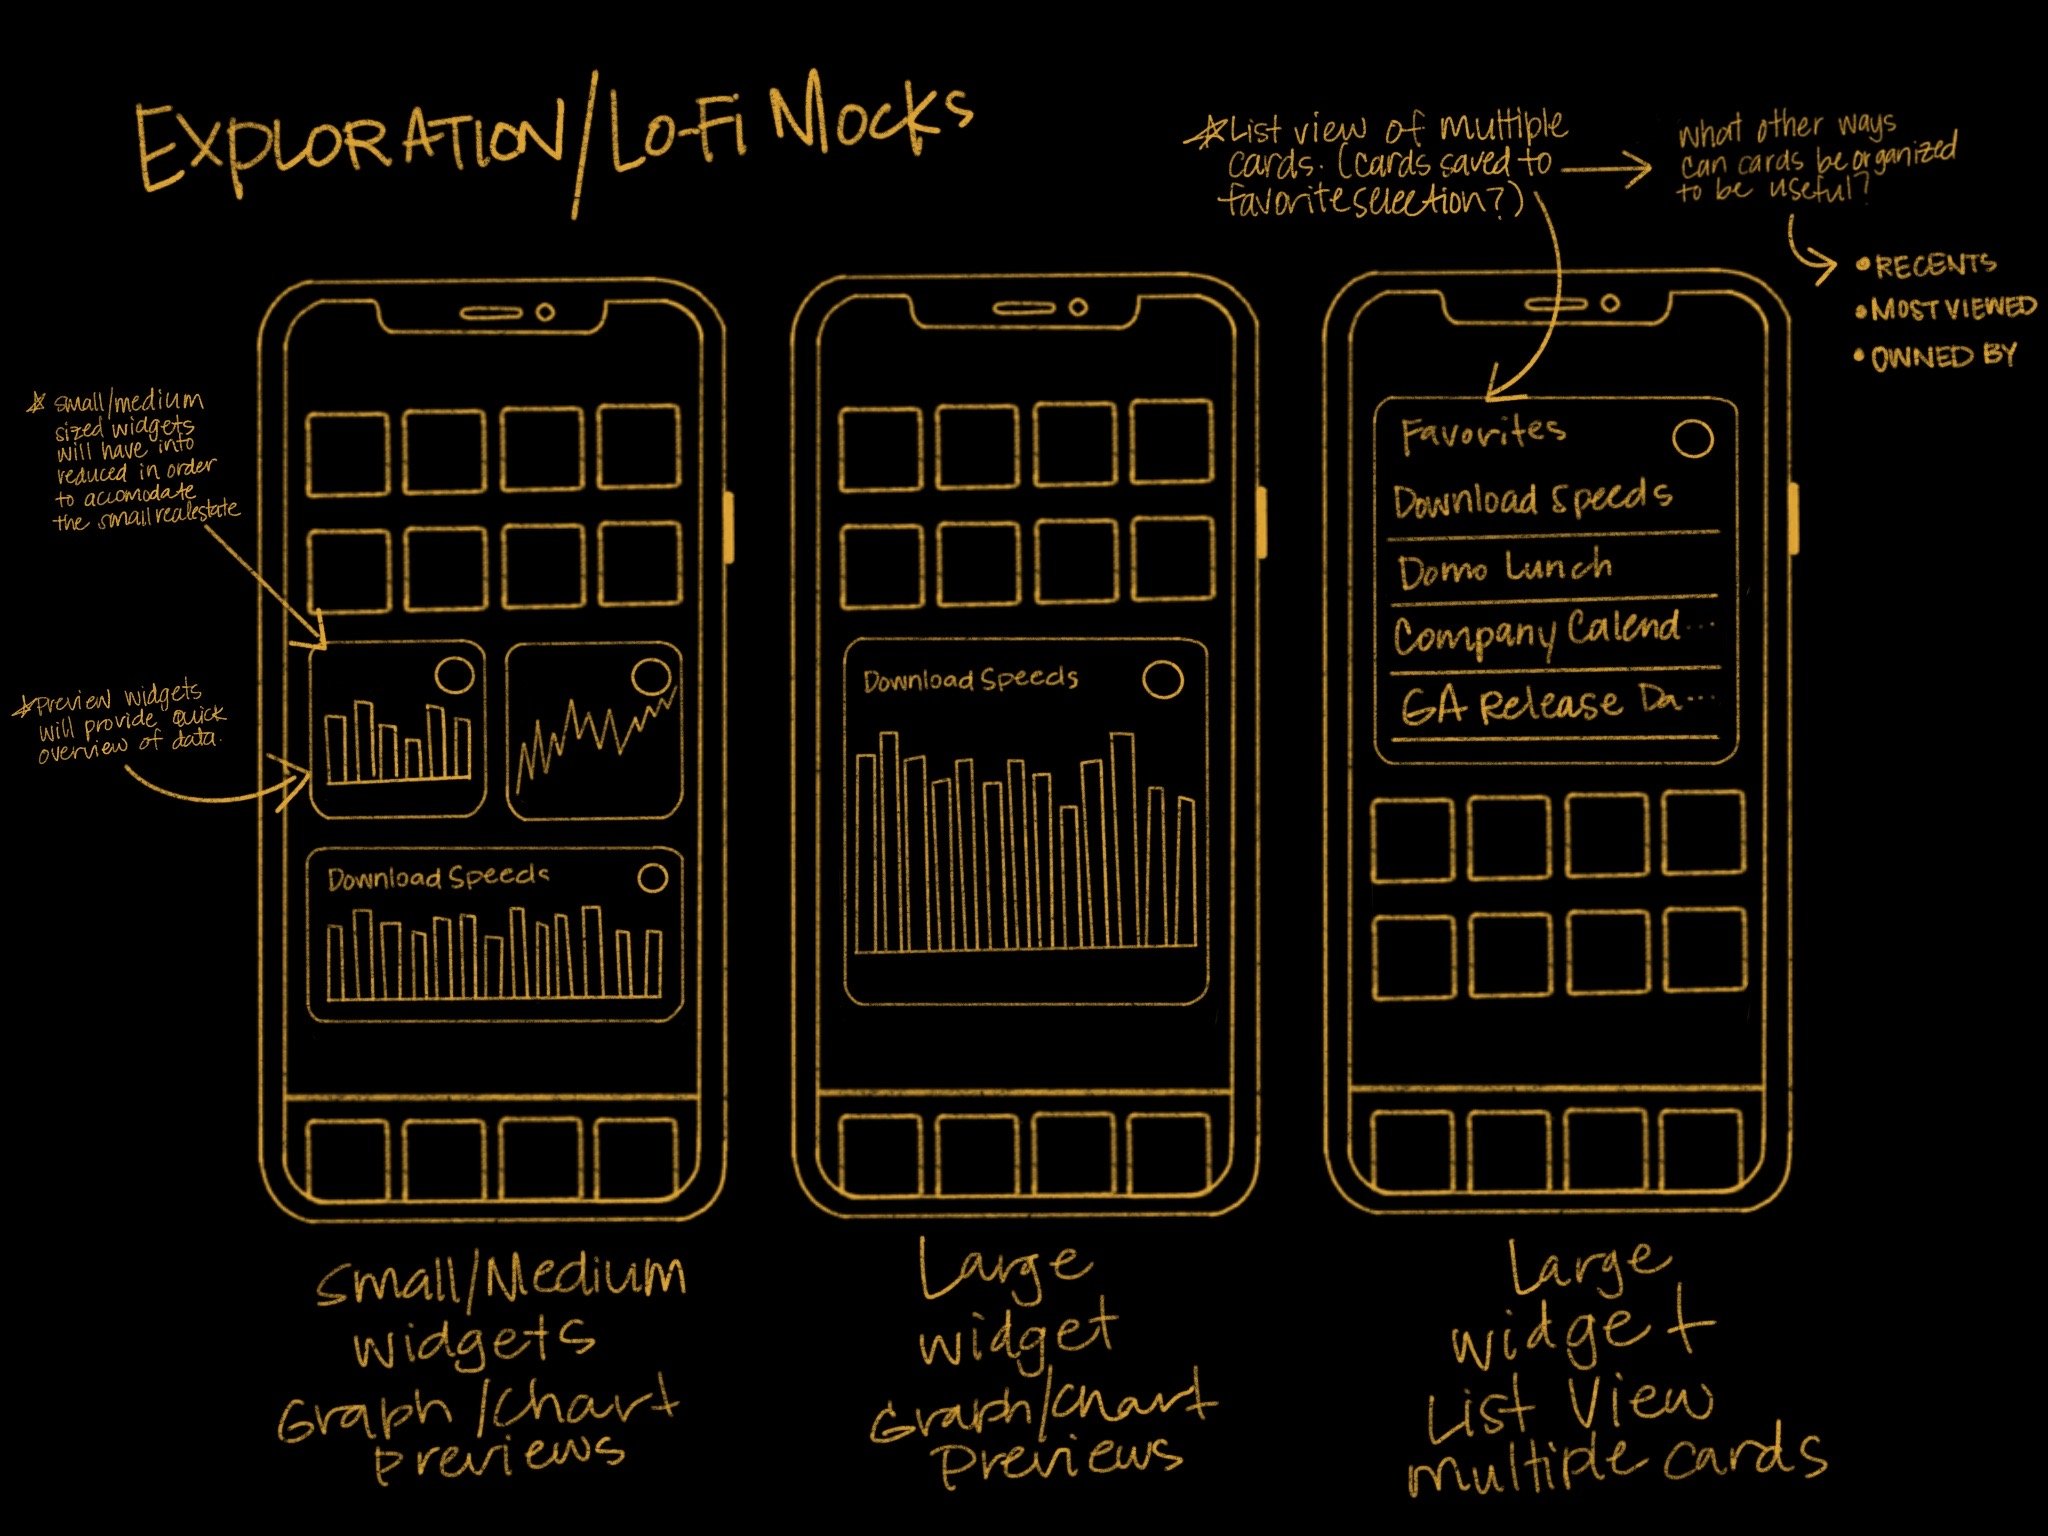 EXPLORATION/LO-FI MOCKS
☆List view of multiple
cards. (cards saved to
favorite selection?)
What other ways
can cards be organized
to be useful?
• RECENTS
• MOST VIEWED
• OWNED BY
☆ small/medium
sized widgets
will have into
reduced in order
to accomodate
the small realestate
☆Preview widgets
will provide quick
overview of data.
Download Speeds
Download Speeds
Favorites
Download Speeds
Domo Lunch
Company Calend...
GA Release Da...
Small/Medium
widgets
Graph/Chart
Previews
Large
widget
Graph/Chart
Previews
Large
widget
List View
multiple cards